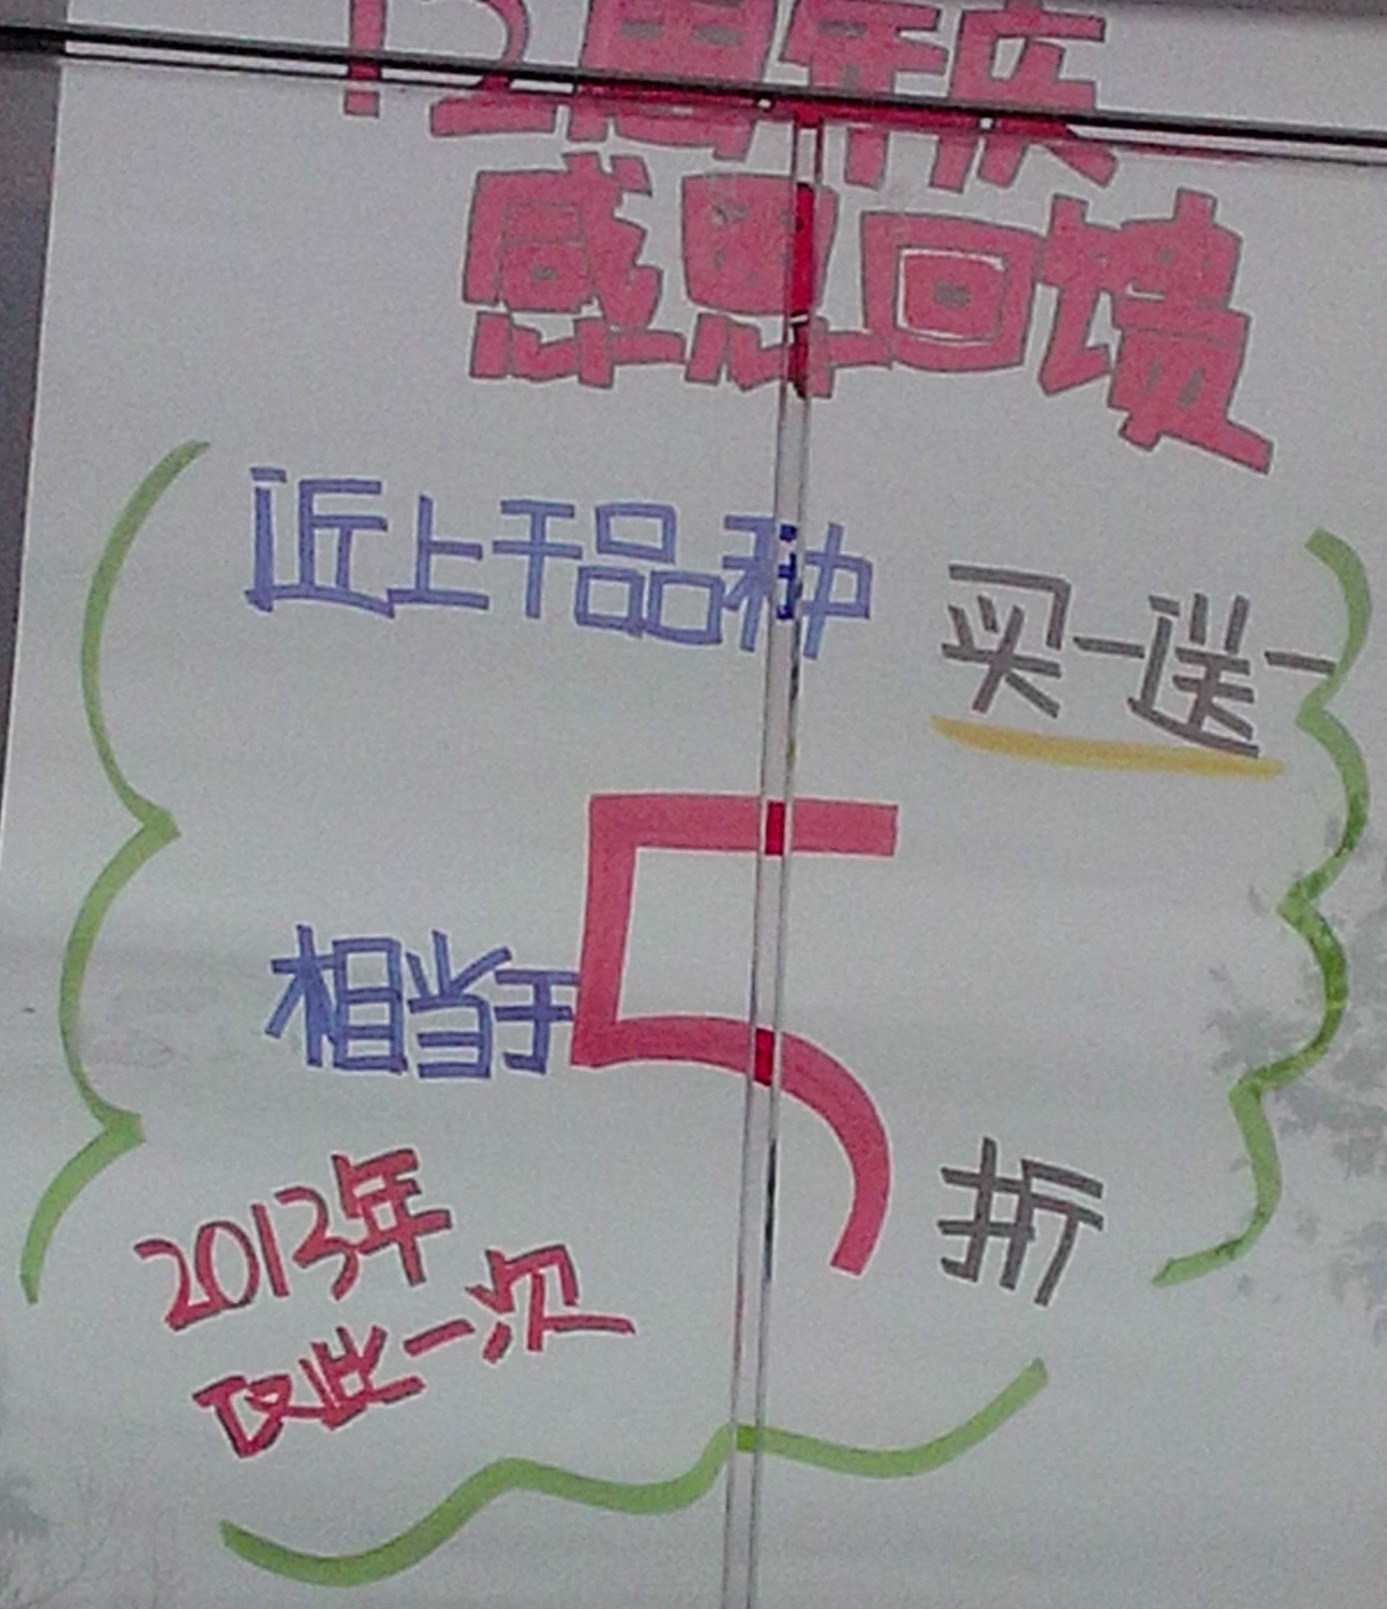 12周年庆
感恩回馈
近上千品种 买一送一
相当于5折
2013年
仅此一次